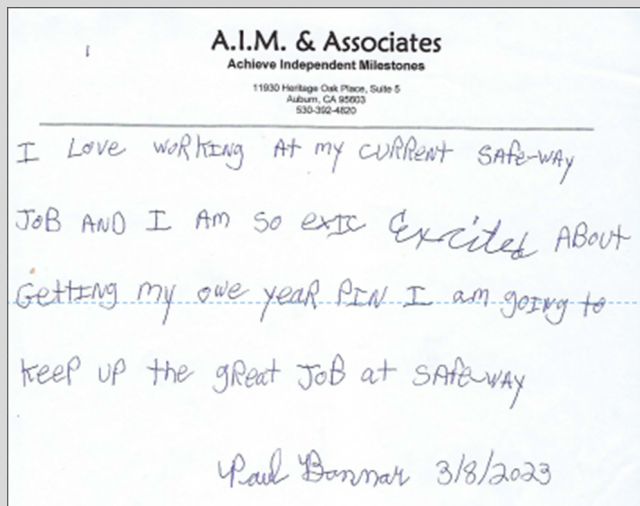 A.I.M. & Associates
Achieve Independent Milestones
11930 Heritage Oak Place, Suite 5
Auburn, CA 95603
530-392-4620
I Love working at my current safe-way
JOB AND I AM SO exIC Excited About
Getting my owe year PIN I am going to
Keep up the great JOB at safe-way
Paul Bannar 3/8/2023